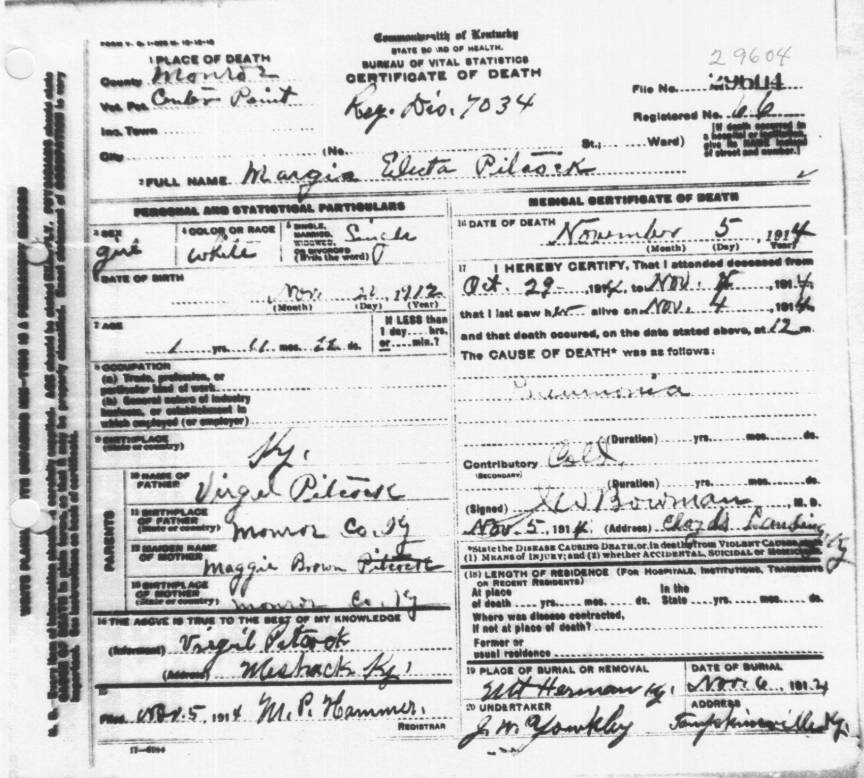 FORM V. S. 1-
Commonwealth of Kentucky
STATE BOARD OF HEALTH.
BUREAU OF VITAL STATISTICS
CERTIFICATE OF DEATH
29604
1 PLACE OF DEATH
County Monroe
Vot. Pct. Center Point
Inc. Town
City (No. St.; Ward)
Reg. Dis. 7034
File No. 29604
Registered No. 66
[If death occurred in a hospital or institution, give its NAME instead of street and number.]
2 FULL NAME Margie Electa Pitcock
PERSONAL AND STATISTICAL PARTICULARS
3 SEX girl
4 COLOR OR RACE white
5 SINGLE, MARRIED, WIDOWED, OR DIVORCED (Write the word) Single
6 DATE OF BIRTH
Nov. 1912
(Month) (Day) (Year)
7 AGE
1 yrs. 11 mos. ds.
If LESS than 1 day ... hrs. or ... min.?
8 OCCUPATION
(a) Trade, profession, or particular kind of work
(b) General nature of industry business, or establishment in which employed (or employer)
9 BIRTHPLACE
(State or country) Ky.
PARENTS
10 NAME OF FATHER Virgil Pitcock
11 BIRTHPLACE OF FATHER (State or country) Monroe Co. Ky
12 MAIDEN NAME OF MOTHER Maggie Brown Pitcock
13 BIRTHPLACE OF MOTHER (State or country) Monroe Co. Ky
14 THE ABOVE IS TRUE TO THE BEST OF MY KNOWLEDGE
(Informant) Virgil Pitcock
(Address) Meshack Ky.
15
Filed Nov. 5, 1914 M. P. Hammer.
REGISTRAR
MEDICAL CERTIFICATE OF DEATH
16 DATE OF DEATH November 5, 1914
(Month) (Day) (Year)
17 I HEREBY CERTIFY, That I attended deceased from
Oct. 29 1914, to Nov. 1914,
that I last saw her alive on Nov. 4, 1914,
and that death occured, on the date stated above, at 12 m.
The CAUSE OF DEATH* was as follows:
Pneumonia
(Duration) yrs. mos. ds.
Contributory Cold
(SECONDARY)
(Duration) yrs. mos. ds.
(Signed) Bowman, M. D.
Nov. 5, 1914 (Address)
*State the DISEASE CAUSING DEATH, or, in deaths from VIOLENT CAUSES, state
(1) MEANS OF INJURY; and (2) whether ACCIDENTAL, SUICIDAL or HOMICIDAL
(18) LENGTH OF RESIDENCE (FOR HOSPITALS, INSTITUTIONS, TRANSIENTS OR RECENT RESIDENTS)
At place of death yrs. mos. ds. In the State yrs. mos. ds.
Where was disease contracted,
If not at place of death?
Former or
usual residence
19 PLACE OF BURIAL OR REMOVAL Mt Herman Ky.
DATE OF BURIAL Nov. 6, 1914
20 UNDERTAKER J. W. Yowkley
ADDRESS Tompkinsville Ky.